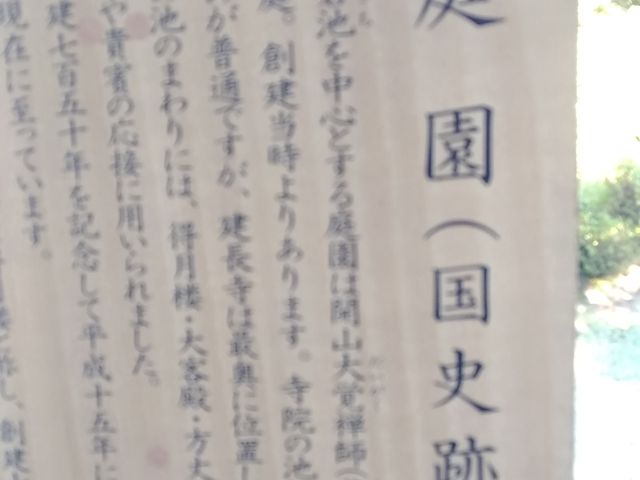 庭園(国史跡
池を中心とする庭園は開山大覚禅師(
庭。創建当時よりあります。寺院の池
が普通ですが、建長寺は最奥に位置し
池のまわりには、得月楼・大客殿・方丈
や貴賓の応接に用いられました。
建七百五十年を記念して平成十五年に
現在に至っています。
称し、創建